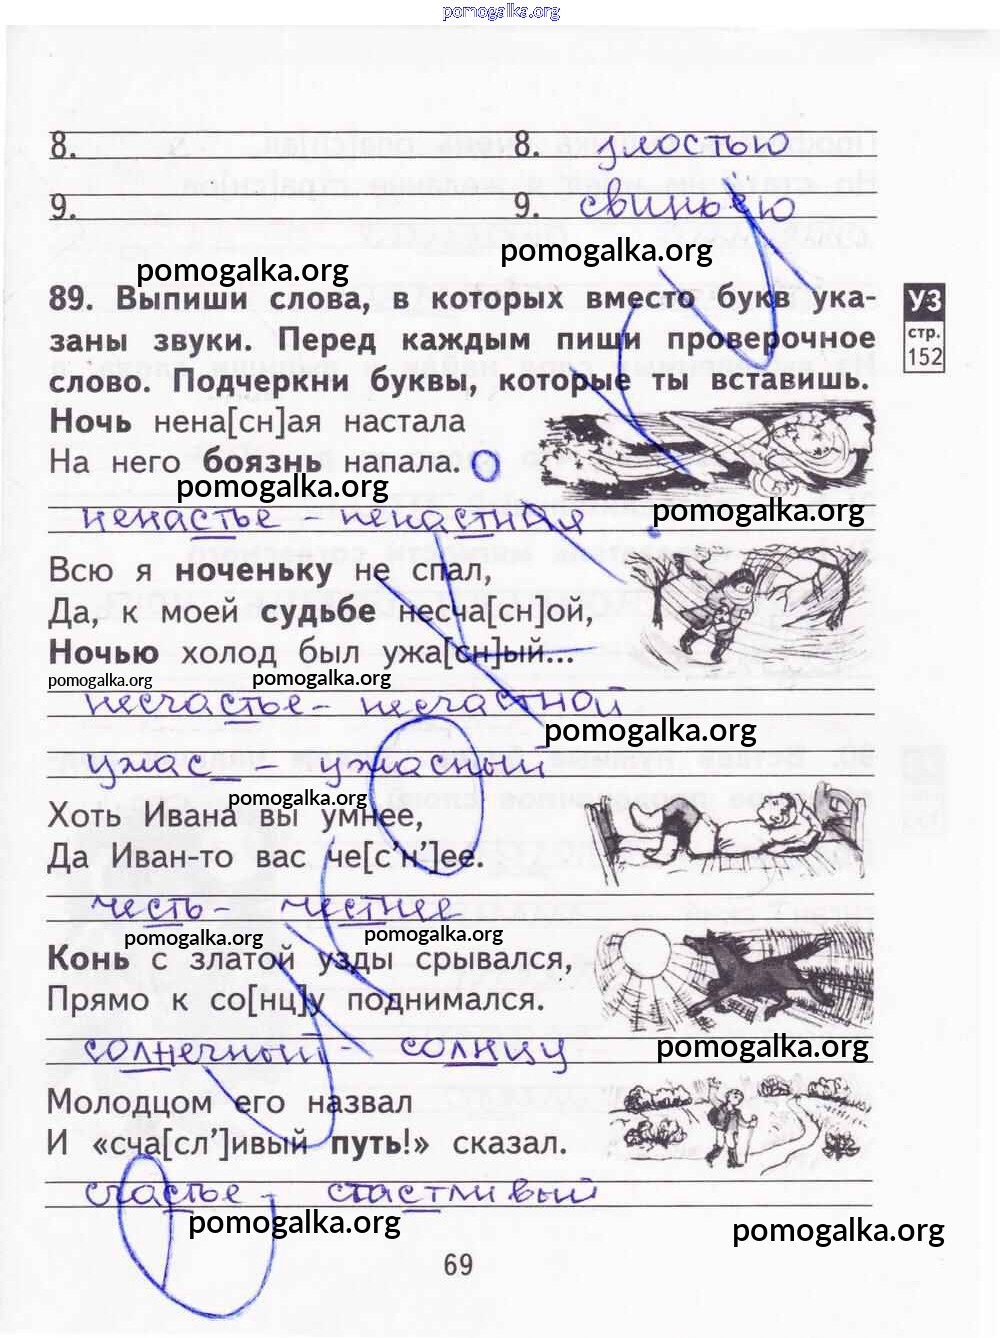 pomogalka.org
8. 8. улостью
9. 9. свиньёю
pomogalka.org pomogalka.org
89. Выпиши слова, в которых вместо букв ука-
заны звуки. Перед каждым пиши проверочное
слово. Подчеркни буквы, которые ты вставишь.
УЗ
стр.
152
Ночь нена[сн]ая настала
На него боязнь напала.
pomogalka.org pomogalka.org
ненастье - ненастная
Всю я ноченьку не спал,
Да, к моей судьбе несча[сн]ой,
Ночью холод был ужа[сн]ый...
pomogalka.org pomogalka.org
несчастье - несчастной
pomogalka.org
ужас_ - ужасный
pomogalka.org
Хоть Ивана вы умнее,
Да Иван-то вас че[с’н’]ее.
честь - честнее
pomogalka.org pomogalka.org
Конь с златой узды срывался,
Прямо к со[нц]у поднимался.
солнечный - солнцу
pomogalka.org
Молодцом его назвал
И «сча[сл’]ивый путь!» сказал.
счастье - стастливый
pomogalka.org pomogalka.org
69